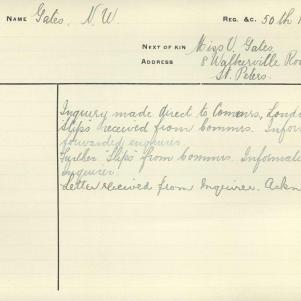 NAME Gates. N.W. REG. &C. 50th
NEXT OF KIN Miss V. Gates
ADDRESS 8 Walkerville Ro
St. Peters.
Inquiry made direct to Commrs, Lond
Slips received from Commrs. Infor
forwarded enquirer.
Further "Slips" from Commrs. Informat
enquirer.
Letter received from Inquirer. Ackn